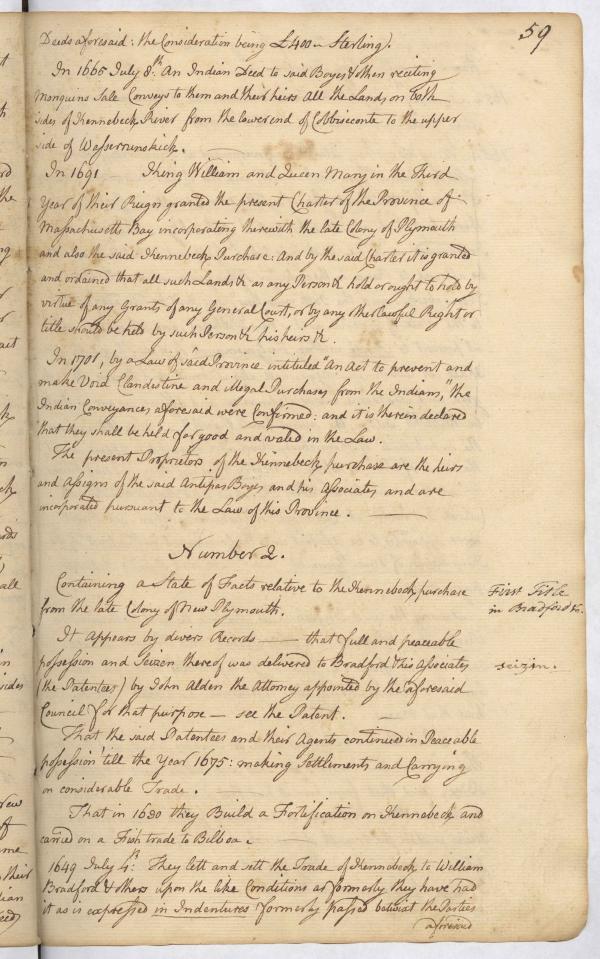 59
Deeds aforesaid: the Consideration being £400 Sterling).
In 1665 July 8.th An Indian Deed to said Boyes & others reciting
Monquins Sale Conveys to them and their heirs all the Lands on both
sides of Kennebeck River from the lower end of Cobbiseconte to the upper
side of Wesserrunskick.
In 1691 King William and Queen Mary in the Third
Year of their Reign granted the present Charter of the Province of
Massachusetts Bay incorporating therewith the late Colony of Plymouth
and also the said Kennebeck Purchase: And by the said Charter it is granted
and ordained that all such Lands &c as any Person &c hold or ought to hold by
virtue of any Grants of any General Court, or by any other lawful Right or
title should be held by such Person &c his heirs &c.
In 1701, by a Law of said Province intituled "An Act to prevent and
make Void Clandestine and illegal Purchases from the Indians," the
Indian Conveyances aforesaid were Confirmed: and it is therein declared
that they shall be held for good and valed in the Law.
The present Proprietors of the Kennebeck purchase are the heirs
and Assigns of the said Antipas Boyes and his Associates and are
incorporated pursuant to the Law of this Province.
Number 2.
Containing a State of Facts relative to the Kennebeck purchase
from the late Colony of New Plymouth.
First Title
in Bradford &c.
It appears by divers Records — that full and peaceable
possession and Seizen thereof was delivered to Bradford & his Associates
seizin.
(the Patentees) by John Alden the Attorney appointed by the aforesaid
Council for that purpose — see the Patent.
That the said Patentees and their Agents continued in Peaceable
possession 'till the Year 1675: making Settlements and Carrying
on considerable Trade.
That in 1630 they Build a Fortification on Kennebeck and
carried on a Fish trade to Bilboa.
1649 July 4.th They lett and sett the Trade of Kennebeck to William
Bradford & others upon the like Conditions as formerly they have had
it as is expressed in Indentures formerly passed betwixt the Parties
aforesaid